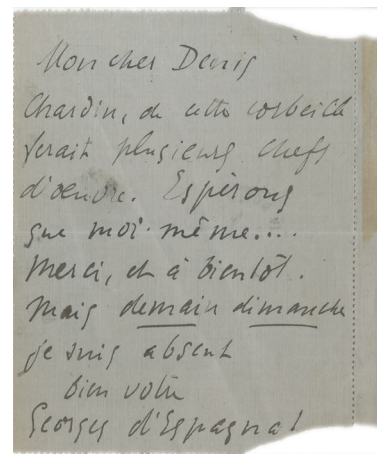 Mon cher Denis
Chardin, de cette corbeille
ferait plusieurs chefs
d'oeuvre. Espérons
que moi-même....
Merci, et à bientôt.
Mais demain dimanche
je suis absent
bien votre
Georges d'Espagnat